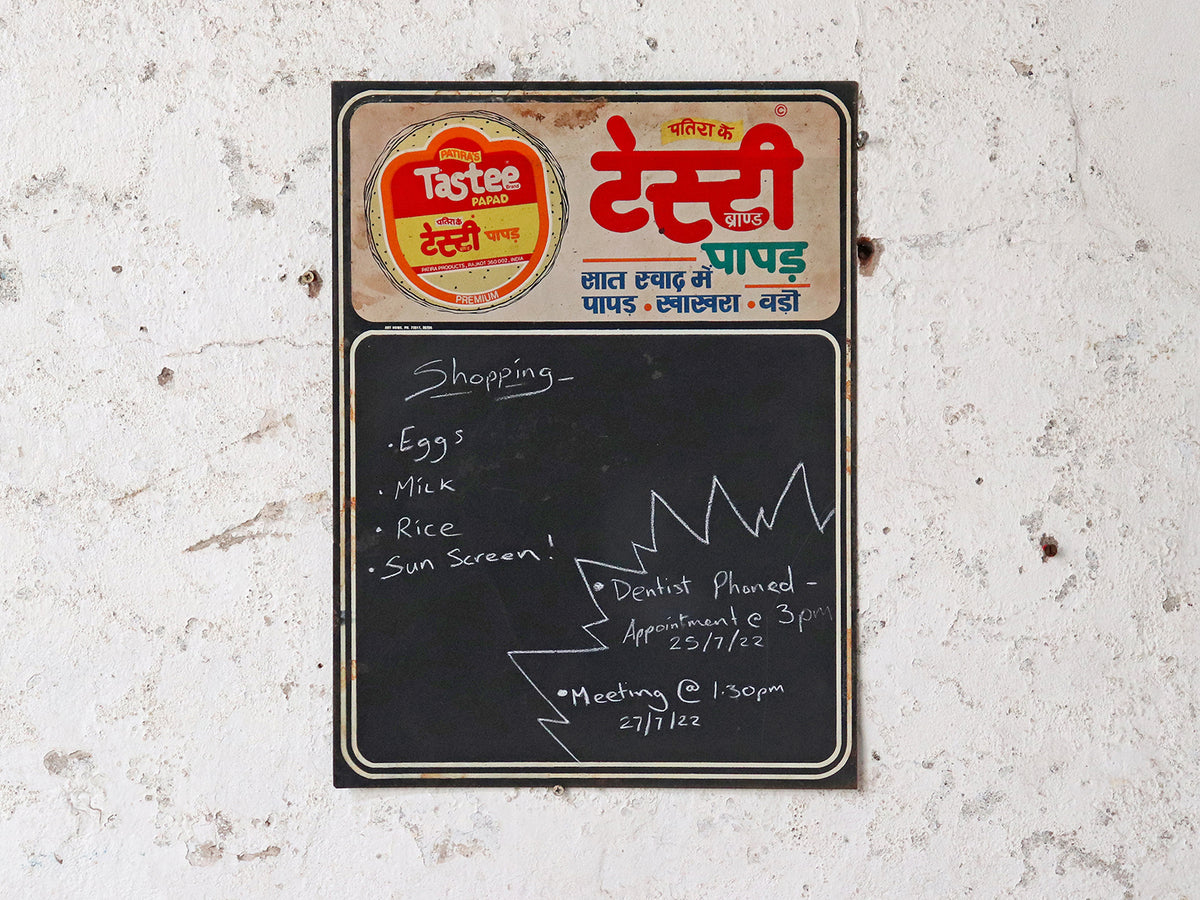 ©
पतिरा के
टेस्टी
ब्राण्ड
पापड़
सात स्वाद़ में
पापड़ • खाखरा • वड़ी
PATIRA'S
Tastee
Brand
PAPAD
पतिरा के
टेस्टी पापड़
PATIRA PRODUCTS, RAJKOT 360 002, INDIA
PREMIUM
Shopping
• Eggs
• Milk
• Rice
• Sun Screen!
• Dentist Phoned -
Appointment @ 3pm
25/7/22
• Meeting @ 1.30pm
27/7/22